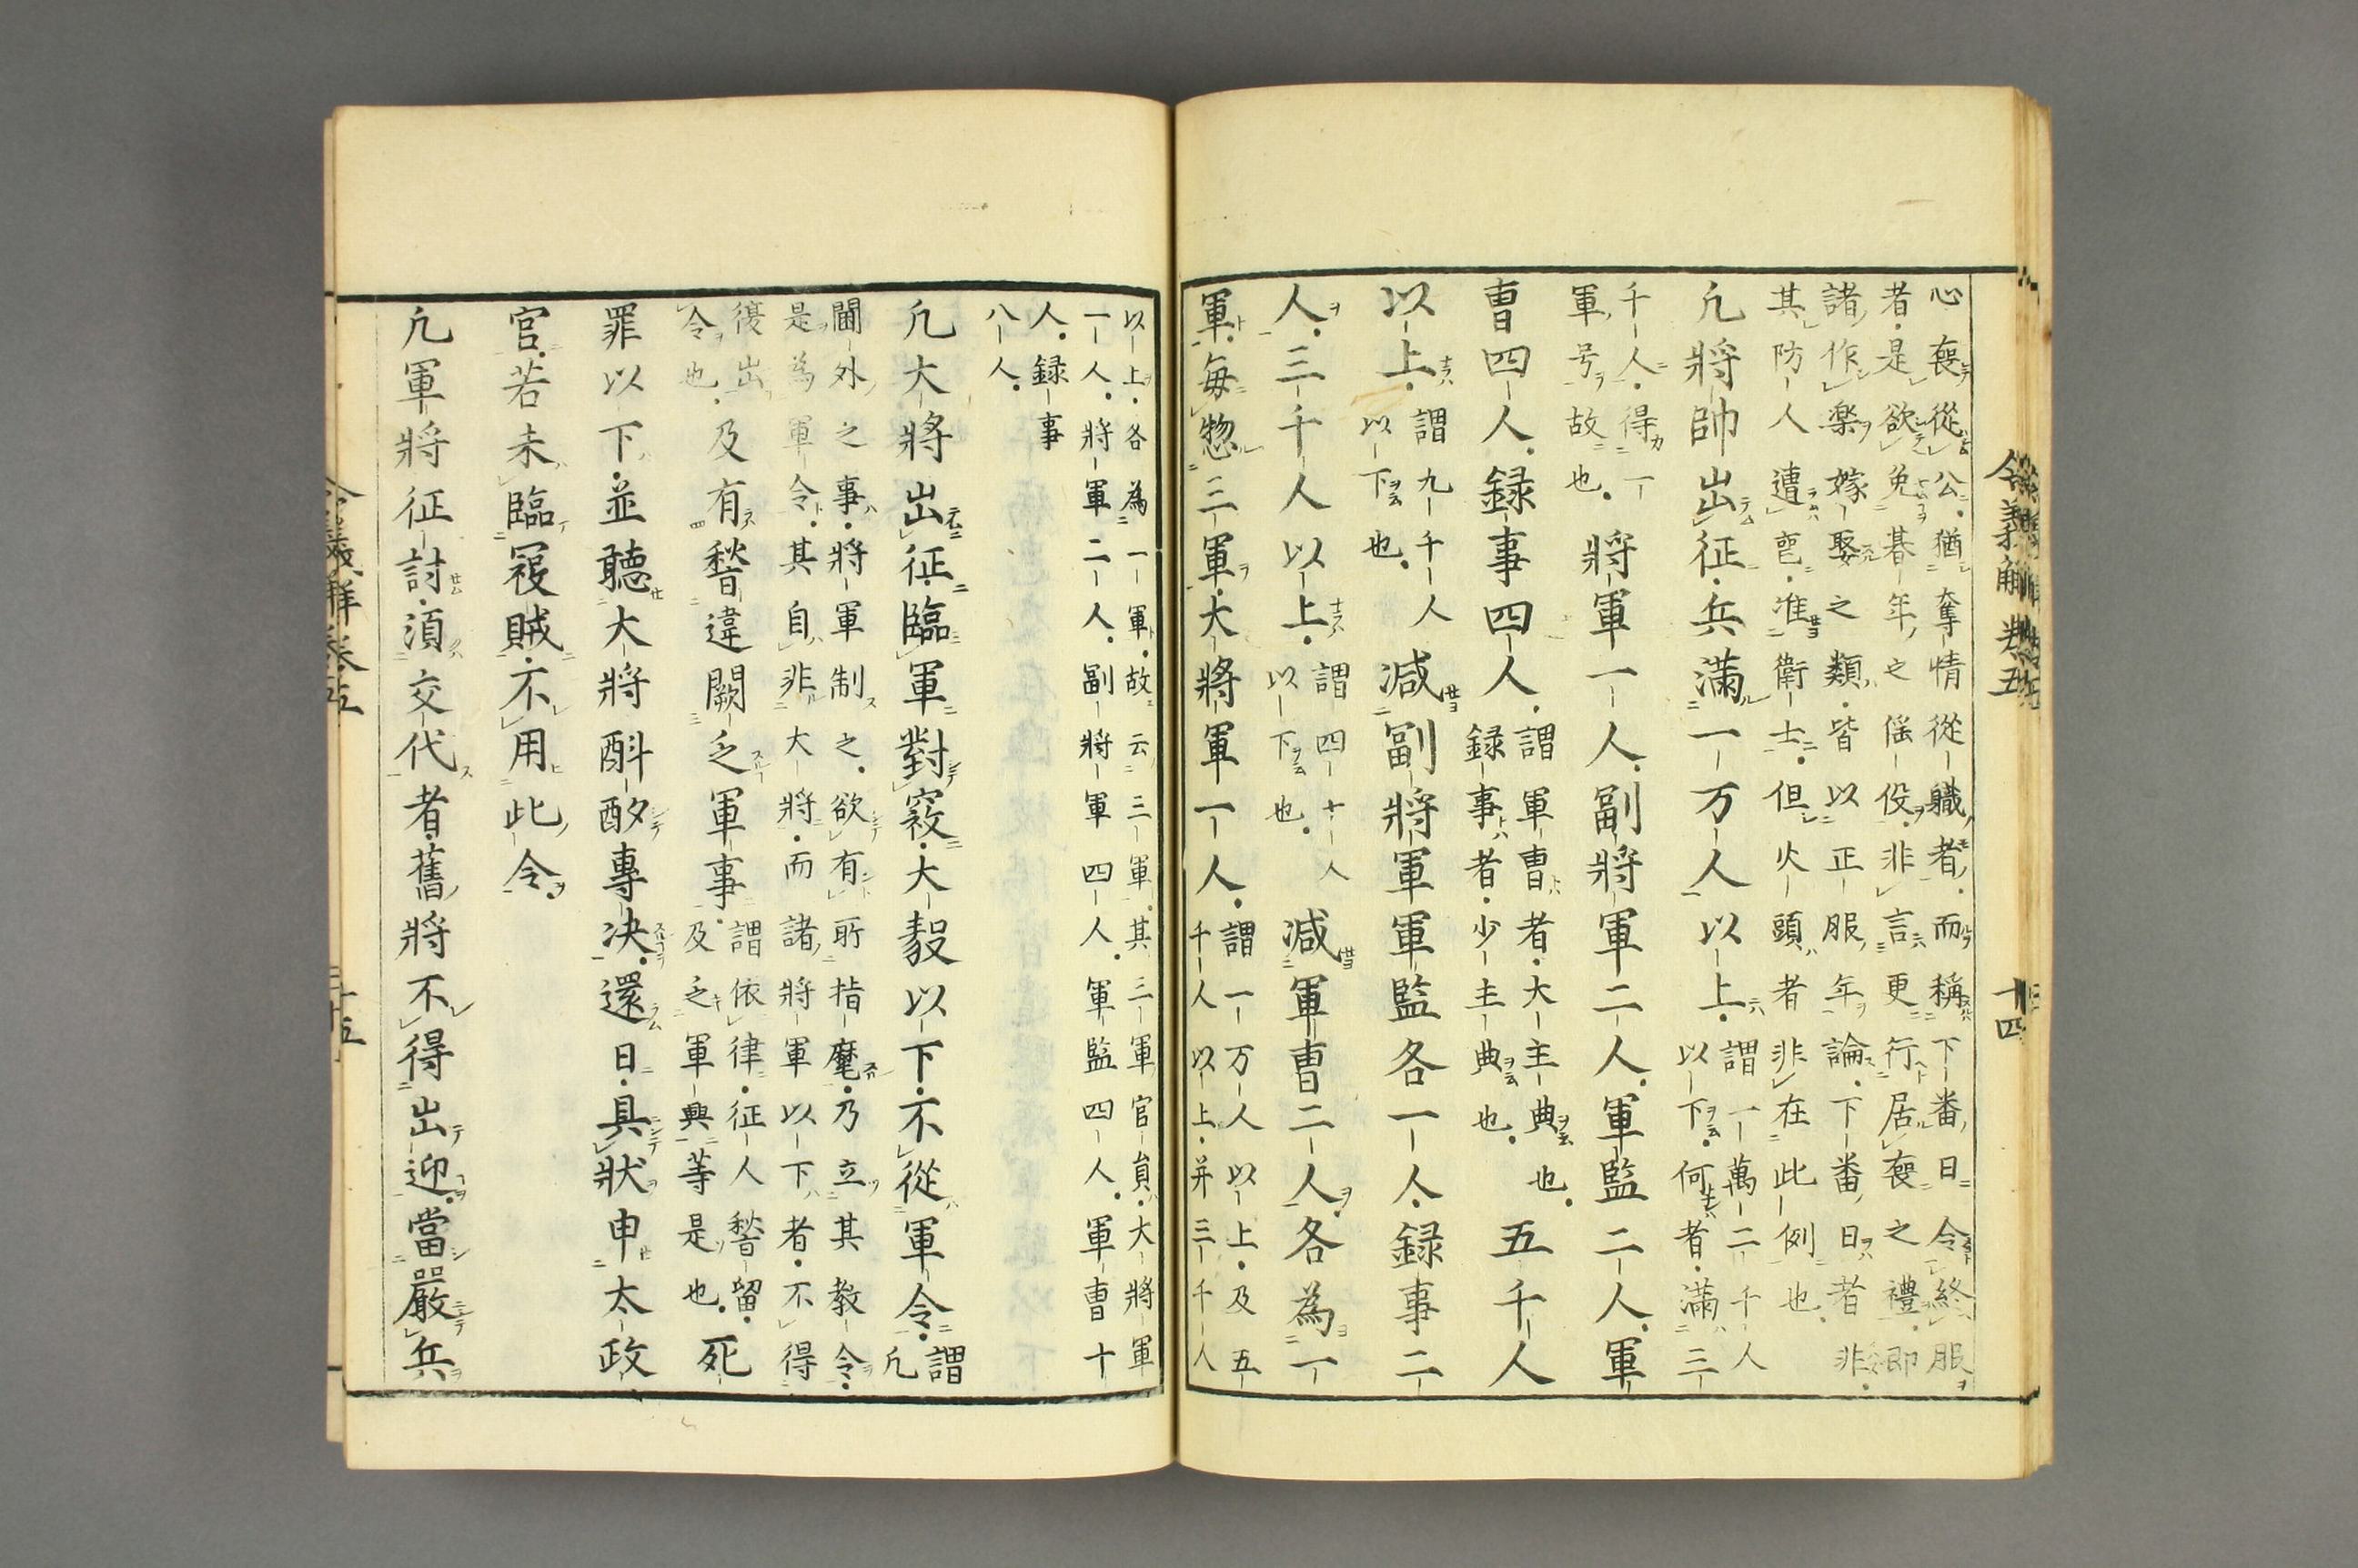 心喪從公猶奪情從職者而稱下番日令終服
者是欲免朞年之徭役非言更行居喪之禮即
諸作楽嫁娶之類皆以正服年論下番日者非
其防人遭喪准衛士但火頭者非在此例也
凢將帥出征兵滿一万人以上謂一萬二千人以下何者滿三
千人得一軍号故也將軍一人副將軍二人軍監二人軍
曹四人録事四人謂軍曹者大主典也録事者少主典也五千人
以上謂九千人以下也減副將軍軍監各一人録事二
人三千人以上謂四千人以下也減軍曹二人各為一
軍毎惣三軍大將軍一人謂一万人以上及五千人以上并三千人
以上各為一軍故云三軍其三軍官員大將軍
一人將軍二人副將軍四人軍監四人軍曹十
人録事
八人
凢大將出征臨軍對寇大毅以下不從軍令謂凢
閫外之事將軍制之欲有所指麾乃立其教令
是為軍令其自非大將而諸將軍以下者不得
復出
令也及有稽違闕乏軍事謂依律征人稽留及乏軍興等是也死
罪以下並聽大將斟酌專决還日具狀申太政
官若未臨寇賊不用此令
凢軍將征討須交代者舊將不得出迎當嚴兵
令義解卷五
十四